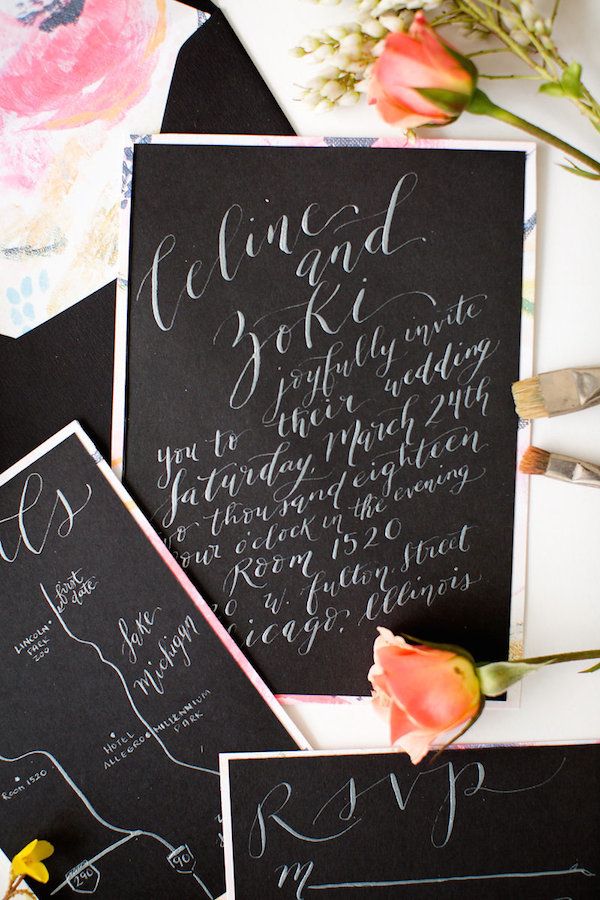 Celine
and
Zoki
joyfully invite
you to their wedding
Saturday, March 24th
wo thousand eighteen
our o'clock in the evening
Room 1520
20 w. fulton street
icago, Illinois
ls
first
date
LINCOLN
PARK
ZOO
Lake
Michigan
HOTEL
ALLEGRO
MILLENNIUM
PARK
ROOM 1520
290
90
Rsvp
M